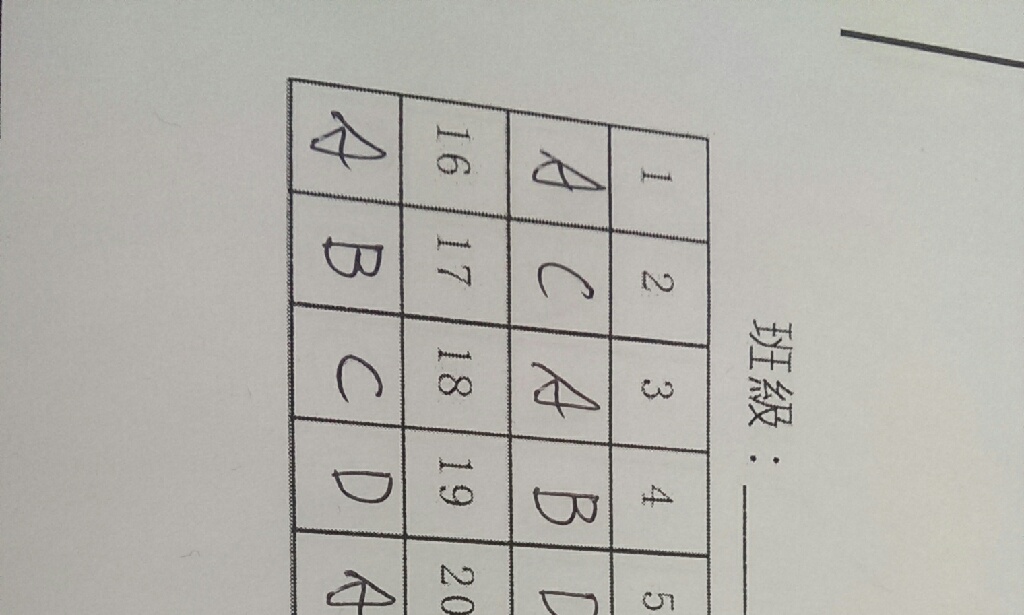 班級：
1 2 3 4 5
A C A B D
16 17 18 19 20
A B C D A